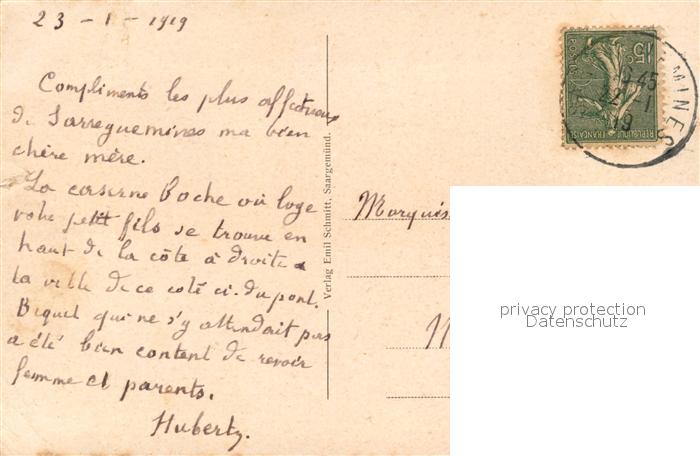 23 - 1 - 1919
Compliments les plus affectueux
de Sarreguemines ma bien
chère mère.
La caserne boche où loge
votre petit fils se trouve en
haut de la côte à droite
la ville de ce coté ci du pont.
qui ne s'y attendait pas
a été bien content de revoir
femme et parents.
Verlag Emil Schmitt, Saargemünd.
15c
REPUBLIQUE FRANÇAISE
MINES
5 45
22-1
19
privacy protection
Datenschutz